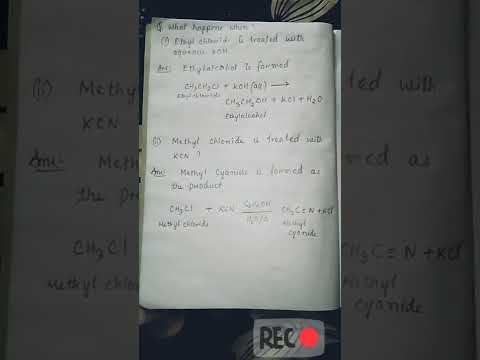 Q. What happens when?
(i) Ethyl chloride is treated with
aqueous KOH.
Ans: Ethylalcohol is formed
CH3CH2Cl + KOH (aq) →
Ethyl chloride
CH3CH2OH + KCl + H2O
Ethylalcohol
(ii) Methyl chloride is treated with
KCN?
Ans: Methyl cyanide is formed as
the product
CH3Cl + KCN C2H5OH CH3C≡N + KCl
H2O/Δ
Methyl chloride Methyl
cyanide
(ii) Methy
Ans:
the prod
CH3Cl
Methyl
ated
as
CH3C≡N + KCl
Methyl
cyanide
REC